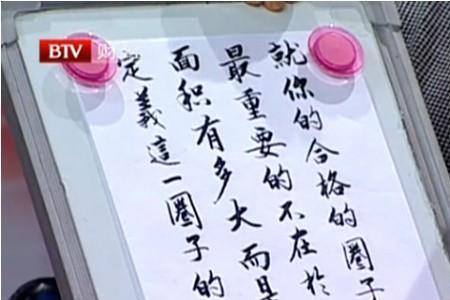 BTV 财经
就你的合格的圈子
最重要的不在於
面积有多大而是
定義這一圈子的